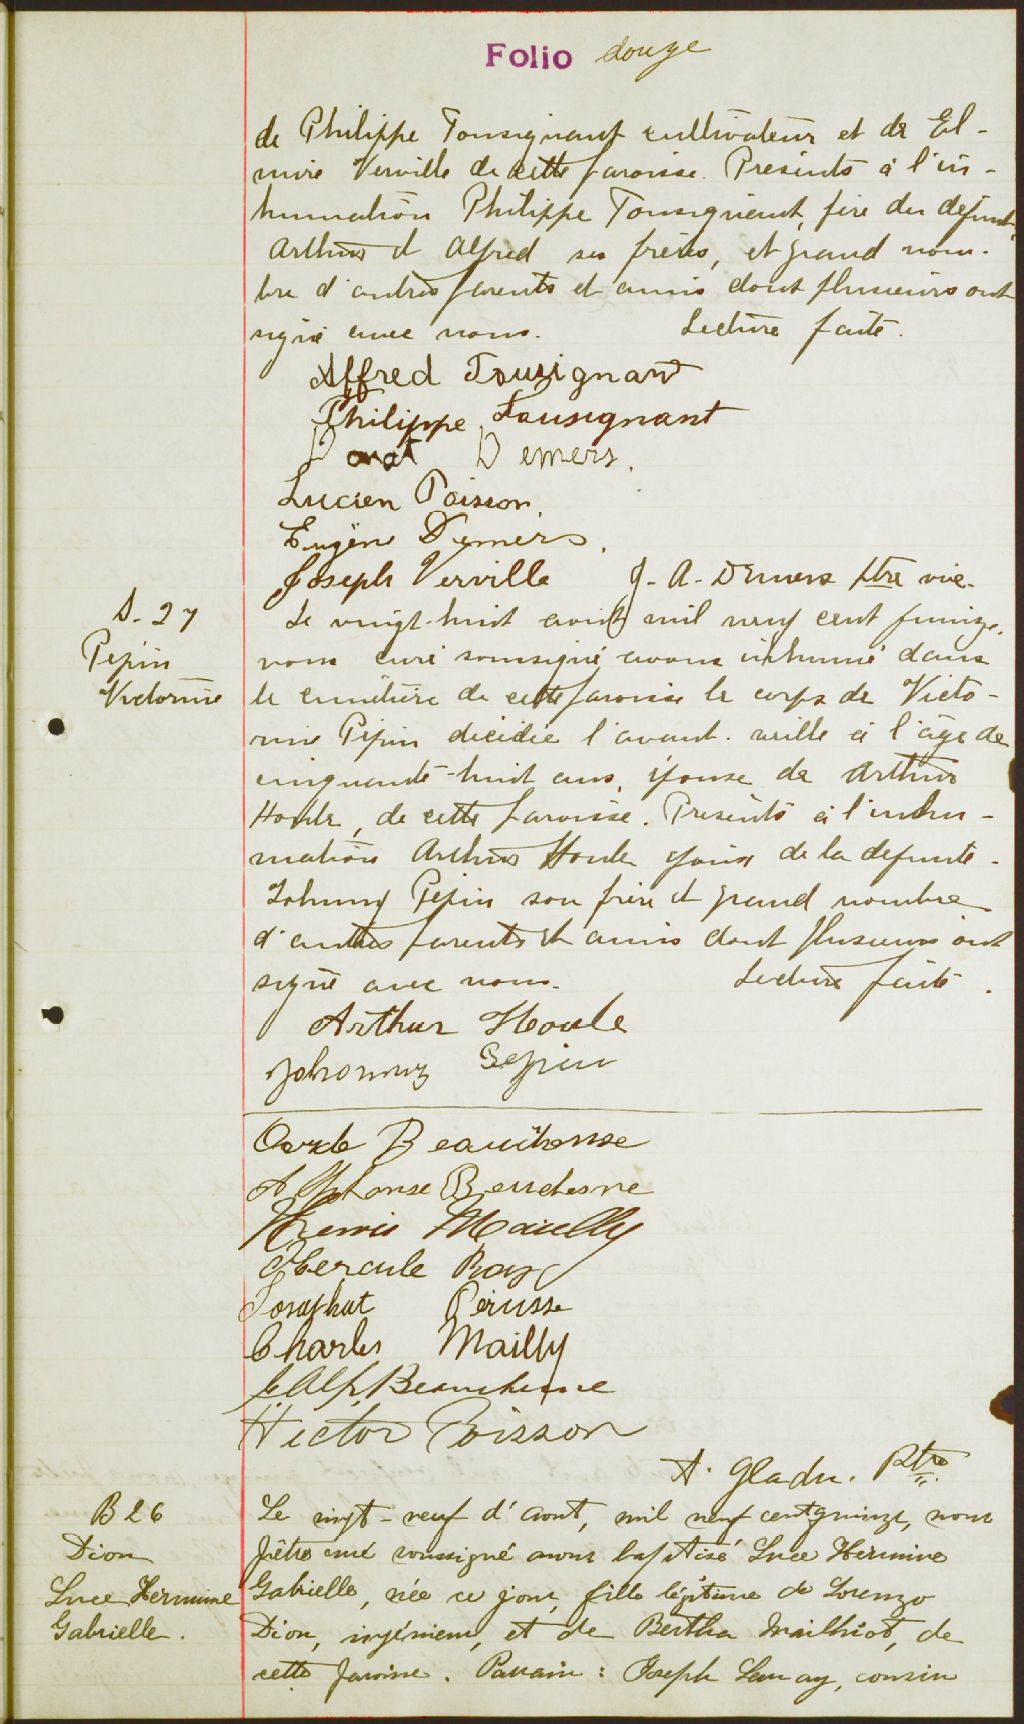 Folio douze
de Philippe Tousignant cultivateur et de El-
mire Verville de cette paroisse. Présents à l'in-
humation Philippe Tousignant, père du défunt,
Arthur et Alfred ses frères, et grand nom-
bre d'autres parents et amis dont plusieurs ont
signé avec nous. Lecture faite.
Alfred Touzignant
Philippe Tousignant
Donat Demers.
Lucien Poisson.
Eugène Demers.
Joseph Verville J. A. Demers Ptre vic.
S. 27
Pepin
Victorine
Le vingt-huit août mil neuf cent quinze,
nous curé soussigné avons inhumé dans
le cimetière de cette paroisse le corps de Victo-
rine Pepin décédée l'avant-veille à l'âge de
cinquante-huit ans, épouse de Arthur
Houle, de cette paroisse. Présents à l'inhu-
mation Arthur Houle époux de la défunte.
Johnny Pépin son frère et grand nombre
d'autres parents et amis dont plusieurs ont
signé avec nous. Lecture faite.
Arthur Houle
Johonny Pepin
Beauchesne
Alphonse Beauchesne
Henri Mailly
Hercule Roy
Josaphat Pérusse
Charles Mailly
Alp. Beauchesne
Hector Poisson
A. Gladu. Ptre
B 26
Dion
Luce Hermine
Gabrielle.
Le vingt-neuf d'août, mil neuf cent quinze, nous
prêtre curé soussigné avons baptisé Luce Hermine
Gabrielle, née ce jour, fille légitime de Lorenzo
Dion, ingénieur, et de Bertha Mailhiot, de
cette paroisse. Parrain : Joseph Lemay, cousin